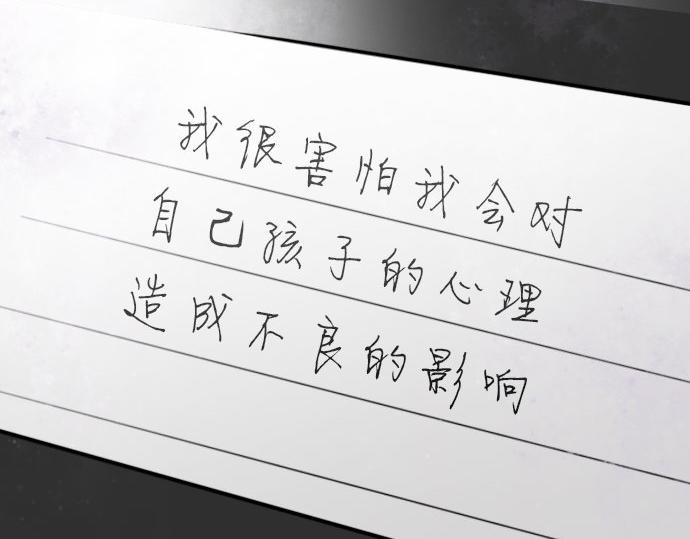 我很害怕我会对
自己孩子的心理
造成不良的影响